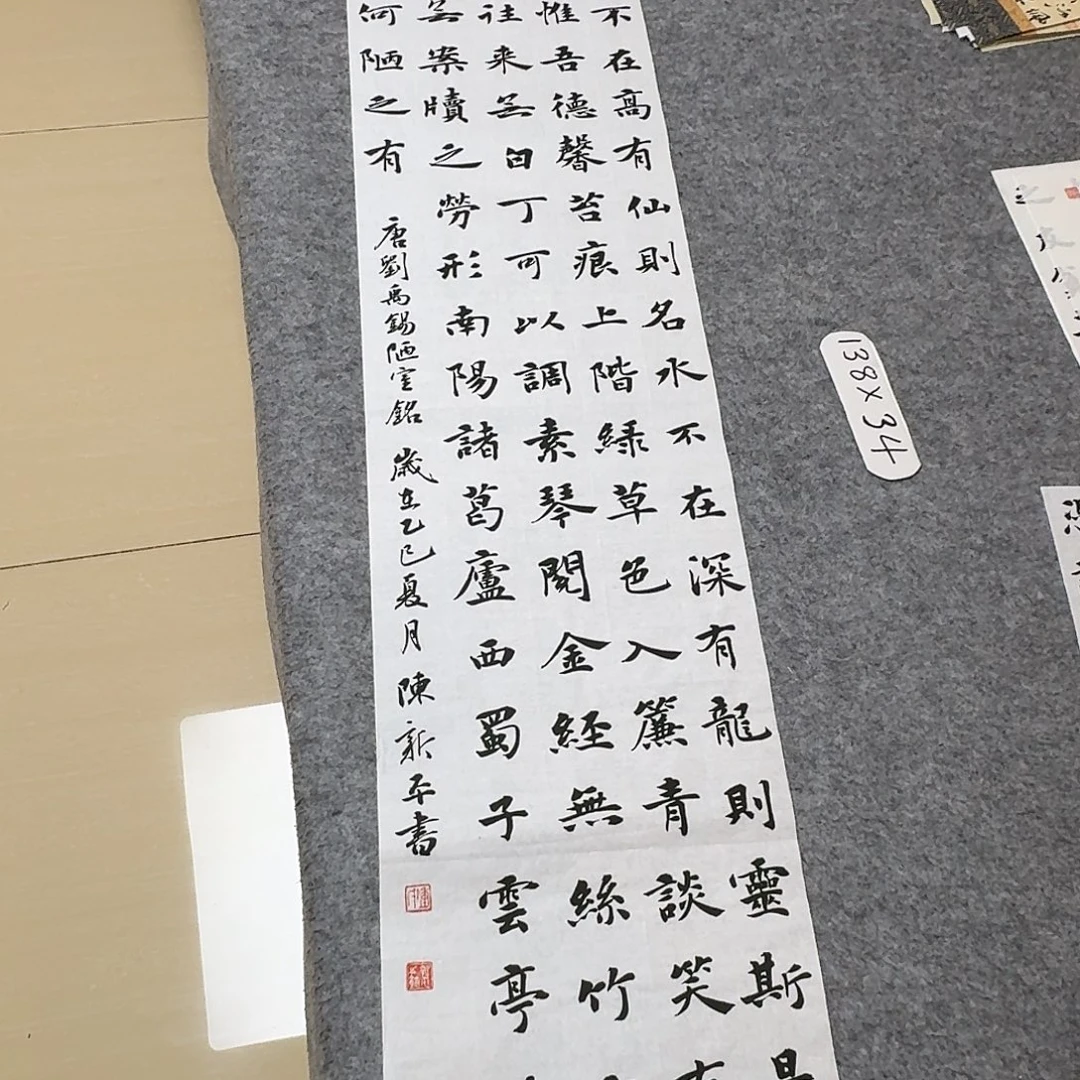 不在高有仙則名水不在深有龍則靈斯是
惟吾德馨苔痕上階綠草色入簾青談笑有
往来無白丁可以調素琴閱金經無絲竹
無案牘之勞形南陽諸葛廬西蜀子雲亭
何陋之有
唐劉禹錫陋室銘 歲在乙巳夏月 陳新平書
138×34